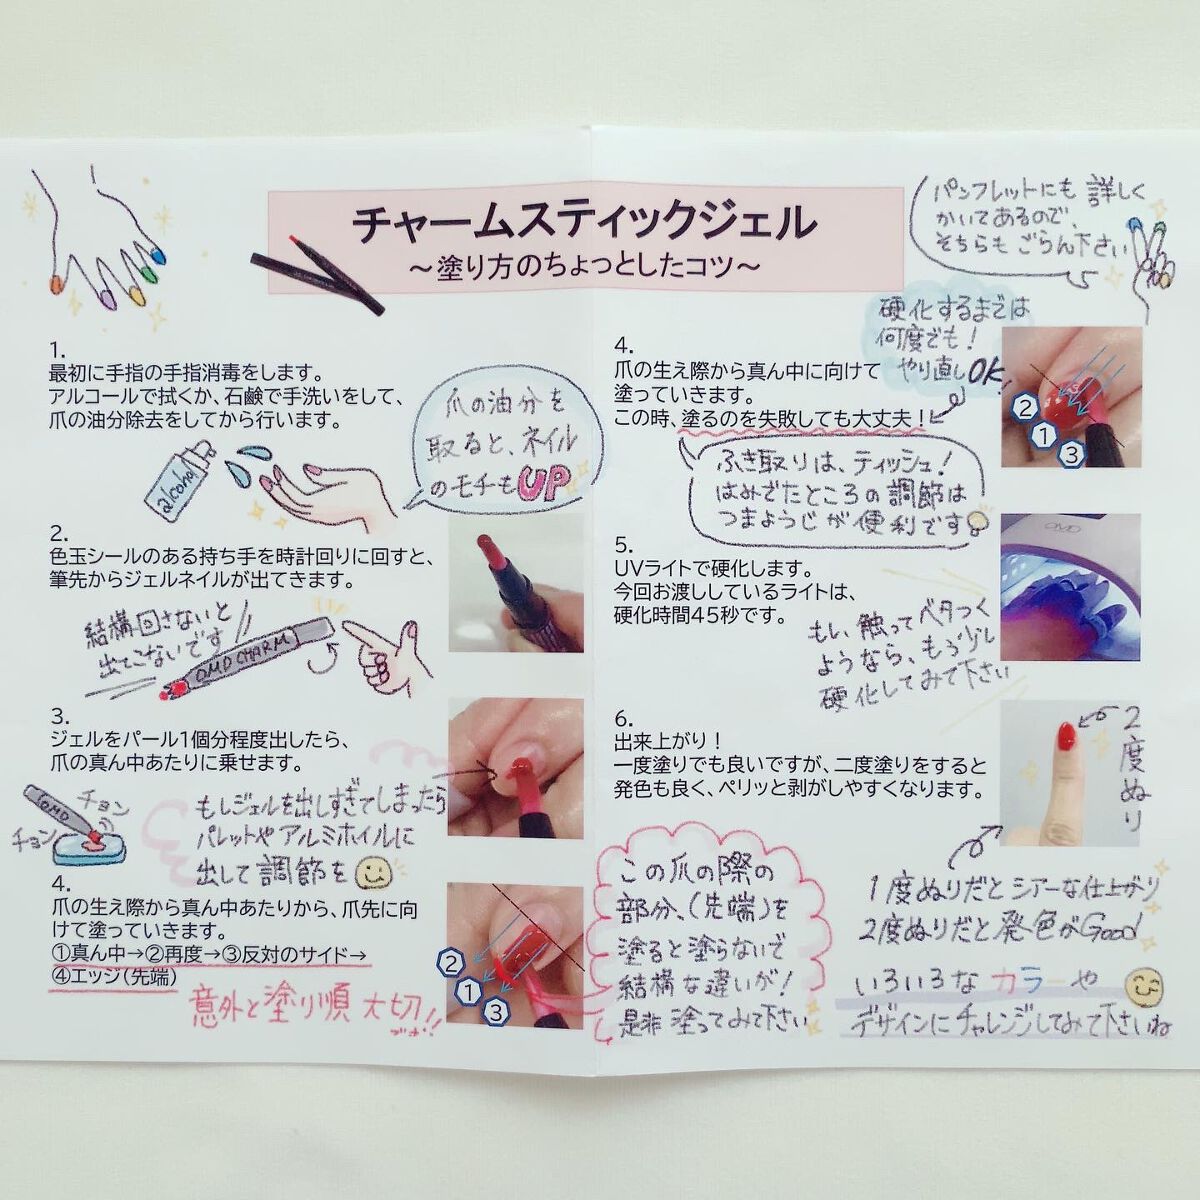 チャームスティックジェル
～塗り方のちょっとしたコツ～
パンフレットにも詳しく
かいてあるので、
そちらもごらん下さい
1.
最初に手指の手指消毒をします。
アルコールで拭くか、石鹸で手洗いをして、
爪の油分除去をしてから行います。
alcohol
爪の油分を
取ると、ネイル
のモチもUP
2.
色玉シールのある持ち手を時計回りに回すと、
筆先からジェルネイルが出てきます。
結構回さないと
出てこないです
OMD CHARM
3.
ジェルをパール1個分程度出したら、
爪の真ん中あたりに乗せます。
OMD
チョン
チョン
もしジェルを出しすぎてしまったら
パレットやアルミホイルに
出して調節を
4.
爪の生え際から真ん中あたりから、爪先に向
けて塗っていきます。
①真ん中→②再度→③反対のサイド→
④エッジ(先端)
意外と塗り順大切!!
②
①
③
この爪の際の
部分、(先端)を
塗ると塗らないで
結構な違いが!
是非塗ってみて下さい
4.
爪の生え際から真ん中に向けて
塗っていきます。
この時、塗るのを失敗しても大丈夫!
硬化するまでは
何度でも!
やり直しOK!
②
①
③
ふき取りは、ティッシュ!
はみでたところの調節は
つまようじが便利です
5.
UVライトで硬化します。
今回お渡ししているライトは、
硬化時間45秒です。
OMD
もし、触ってベタつく
ようなら、もう少し
硬化してみて下さい
6.
出来上がり!
一度塗りでも良いですが、二度塗りをすると
発色も良く、ペリッと剥がしやすくなります。
2度ぬり
1度ぬりだとシアーな仕上がり
2度ぬりだと発色がGood
いろいろなカラーや
デザインにチャレンジしてみて下さいね